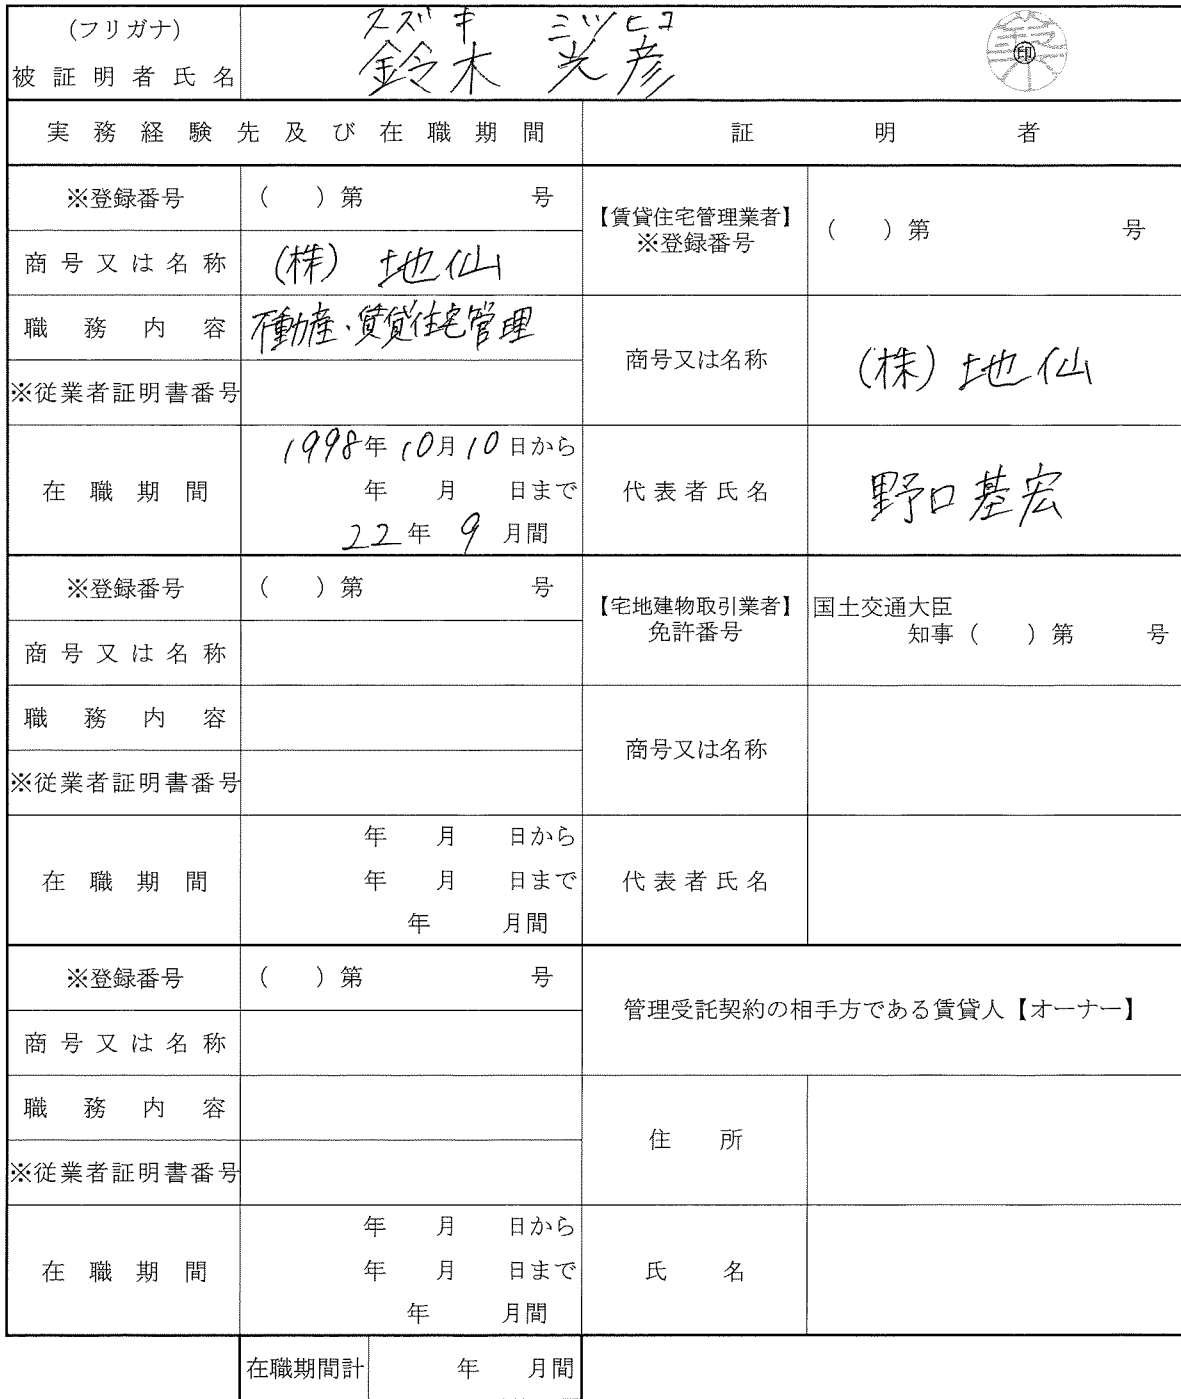 (フリガナ) スズキ ミツヒコ
被証明者氏名 鈴木 光彦 ㊞
実務経験先及び在職期間 証明者
※登録番号 ( ) 第 号
【賃貸住宅管理業者】
※登録番号 ( ) 第 号
商号又は名称 (株) 地仙
職務内容 不動産・賃貸住宅管理
商号又は名称 (株) 地仙
※従業者証明書番号
在職期間
1998年10月10日から
年 月 日まで
22年 9月間
代表者氏名 野口基宏
※登録番号 ( ) 第 号
【宅地建物取引業者】
免許番号
国土交通大臣
知事 ( ) 第 号
商号又は名称
職務内容
商号又は名称
※従業者証明書番号
在職期間
年 月 日から
年 月 日まで
年 月間
代表者氏名
※登録番号 ( ) 第 号
管理受託契約の相手方である賃貸人【オーナー】
商号又は名称
職務内容
住所
※従業者証明書番号
在職期間
年 月 日から
年 月 日まで
年 月間
氏名
在職期間計 年 月間